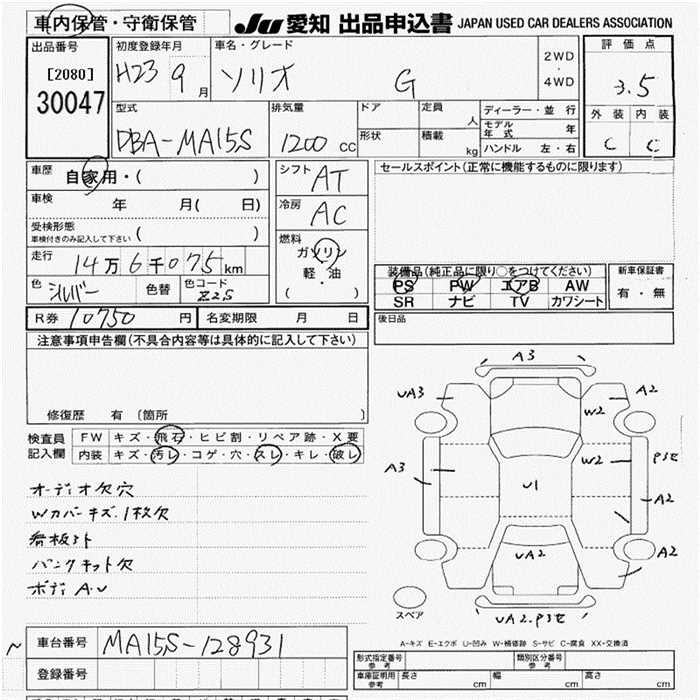 車内保管・守衛保管
JU 愛知 出品申込書 JAPAN USED CAR DEALERS ASSOCIATION
出品番号
[2080]
30047
初度登録年月
H23 9 月
車名・グレード
ソリオ G
2WD
・
4WD
評価点
3.5
外装 内装
C C
型式
DBA-MA15S
排気量
1200 cc
ドア
形状
定員 人
積載 kg
ディーラー・並 行
モデル年式 年
ハンドル 左・右
車歴 自家用・( )
車検 年 月( 日)
受検形態
車検付きのみ記入して下さい ( )
走行 14万6千075km
色 シルバー 色替 色コード Z2S
シフト AT
冷房 AC
燃料
ガソリン
軽・油
( )
セールスポイント(正常に機能するものに限ります)
装備品(純正品に限り○をつけてください)
PS PW エアB AW
SR ナビ TV カワシート
新車保証書
有・無
R券 10750 円 名変期限 月 日
後日品
注意事項申告欄(不具合内容等は具体的に記入して下さい)
修復歴 有 〔箇所 〕
検査員記入欄
FW キズ・飛石・ヒビ割・リペア跡・X要
内装 キズ・汚レ・コゲ・穴・スレ・キレ・破レ
オーディオ欠穴
Wカバーキズ.1枚欠
看板跡
パンクキット欠
ボディ A.U
A3
UA3
A2
W2
A3
W2
Pタセ
A2
U1
UA2
A2
スペア
UA2.Pタセ
A-キズ E-エクボ U-凹み W-補修跡 S-サビ C-腐食 XX-交換済
車台番号 MA15S-128931
登録番号
型式指定番号 参考
類別区分番号 参考
車庫証明用 参考 長さ cm 幅 cm 高さ cm